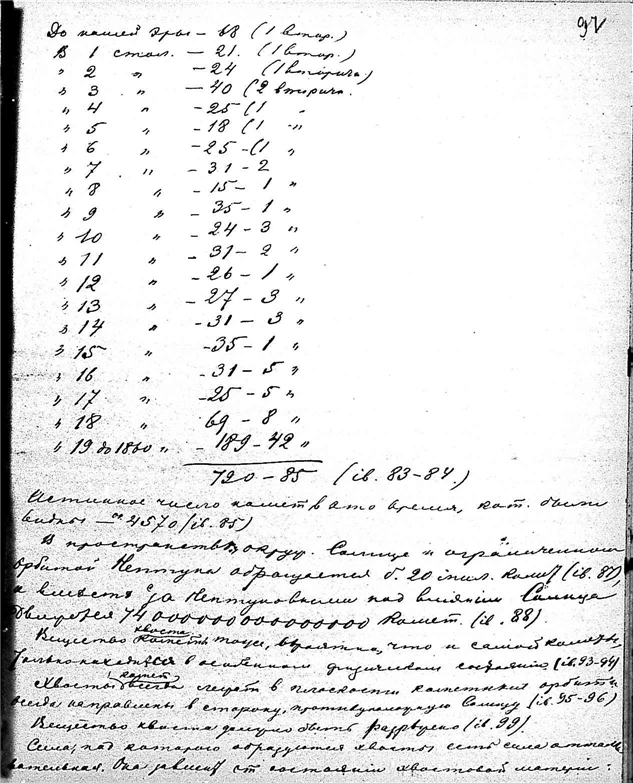 97
До нашей эры – 68 (1 втор.)
В 1 стол. – 21. (1 втор.)
" 2 " – 24 (1 вторич.)
" 3 " – 40 (2 вторич.
" 4 " – 25 (1 "
" 5 " – 18 (1 – "
" 6 " – 25 – (1 "
" 7 " – 31 – 2
" 8 " – 15 – 1 "
" 9 " – 35 – 1 "
" 10 " – 24 – 3 "
" 11 " – 31 – 2 "
" 12 " – 26 – 1 "
" 13 " – 27 – 3 "
" 14 " – 31 – 3 "
" 15 " – 35 – 1 "
" 16 " – 31 – 5 "
" 17 " – 25 – 5 "
" 18 " 69 – 8 "
" 19 до 1860 " – 189 – 42 "
720 – 85 (ib. 83–84.)
Истинное число комет в это время, кот. были
видны – 4570 (ib. 85)
В пространстве, округ. Солнце и ограниченном
орбитой Нептуна обращается б. 20 мил. комет (ib. 87),
а вместе за Нептуновыми под влиянием Солнца
движутся 74,000000000000000 комет. (ib. 88).
Вещество хвоста кометы тоже, вероятно, что и самой кометы,
только находится в особенном физическом состоянии (ib. 93–94)
Хвосты комет всегда лежат в плоскости кометных орбит и
всегда направлены в сторону, противуположную Солнцу (ib. 95–96)
Вещество хвоста должно быть разрежено (ib. 99).
Сила, под которого образуются хвосты есть сила отталки
вательная. Она зависит от состояния хвостовой материи: